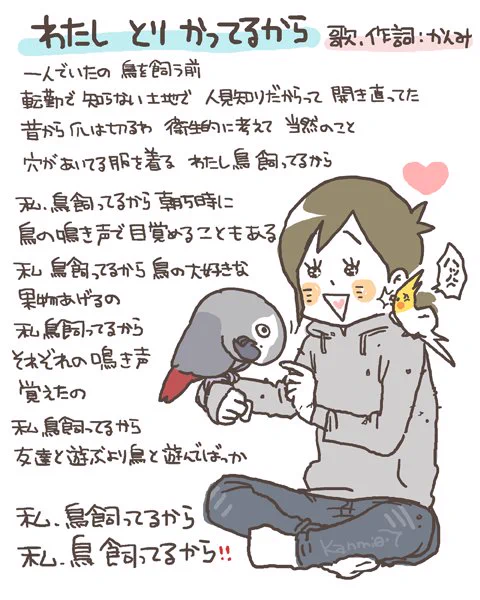 わたし とり かってるから 歌.作詞:かんみ
一人でいたの 鳥を飼う前
転勤で 知らない土地で 人見知りだからって 開き直ってた
昔から爪は切るわ 衛生的に考えて 当然のこと
穴があいてる服を着る わたし鳥飼ってるから
私.鳥飼ってるから 朝5時に
鳥の鳴き声で目覚めることもある
私 鳥飼ってるから 鳥の大好きな
果物あげるの
私 鳥飼ってるから
それぞれの鳴き声
覚えたの
私 鳥飼ってるから
友達と遊ぶより鳥と遊んでばっか
私.鳥飼ってるから
私.鳥 飼ってるから!!